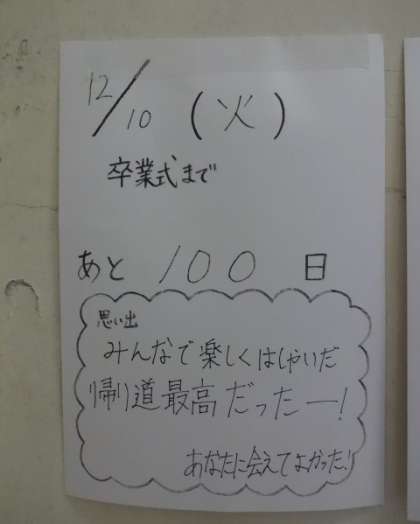 12/10 (火)
卒業式まで
あと 100 日
思い出
みんなで楽しくはしゃいだ
帰り道最高だったー!
あなたに会えてよかった!